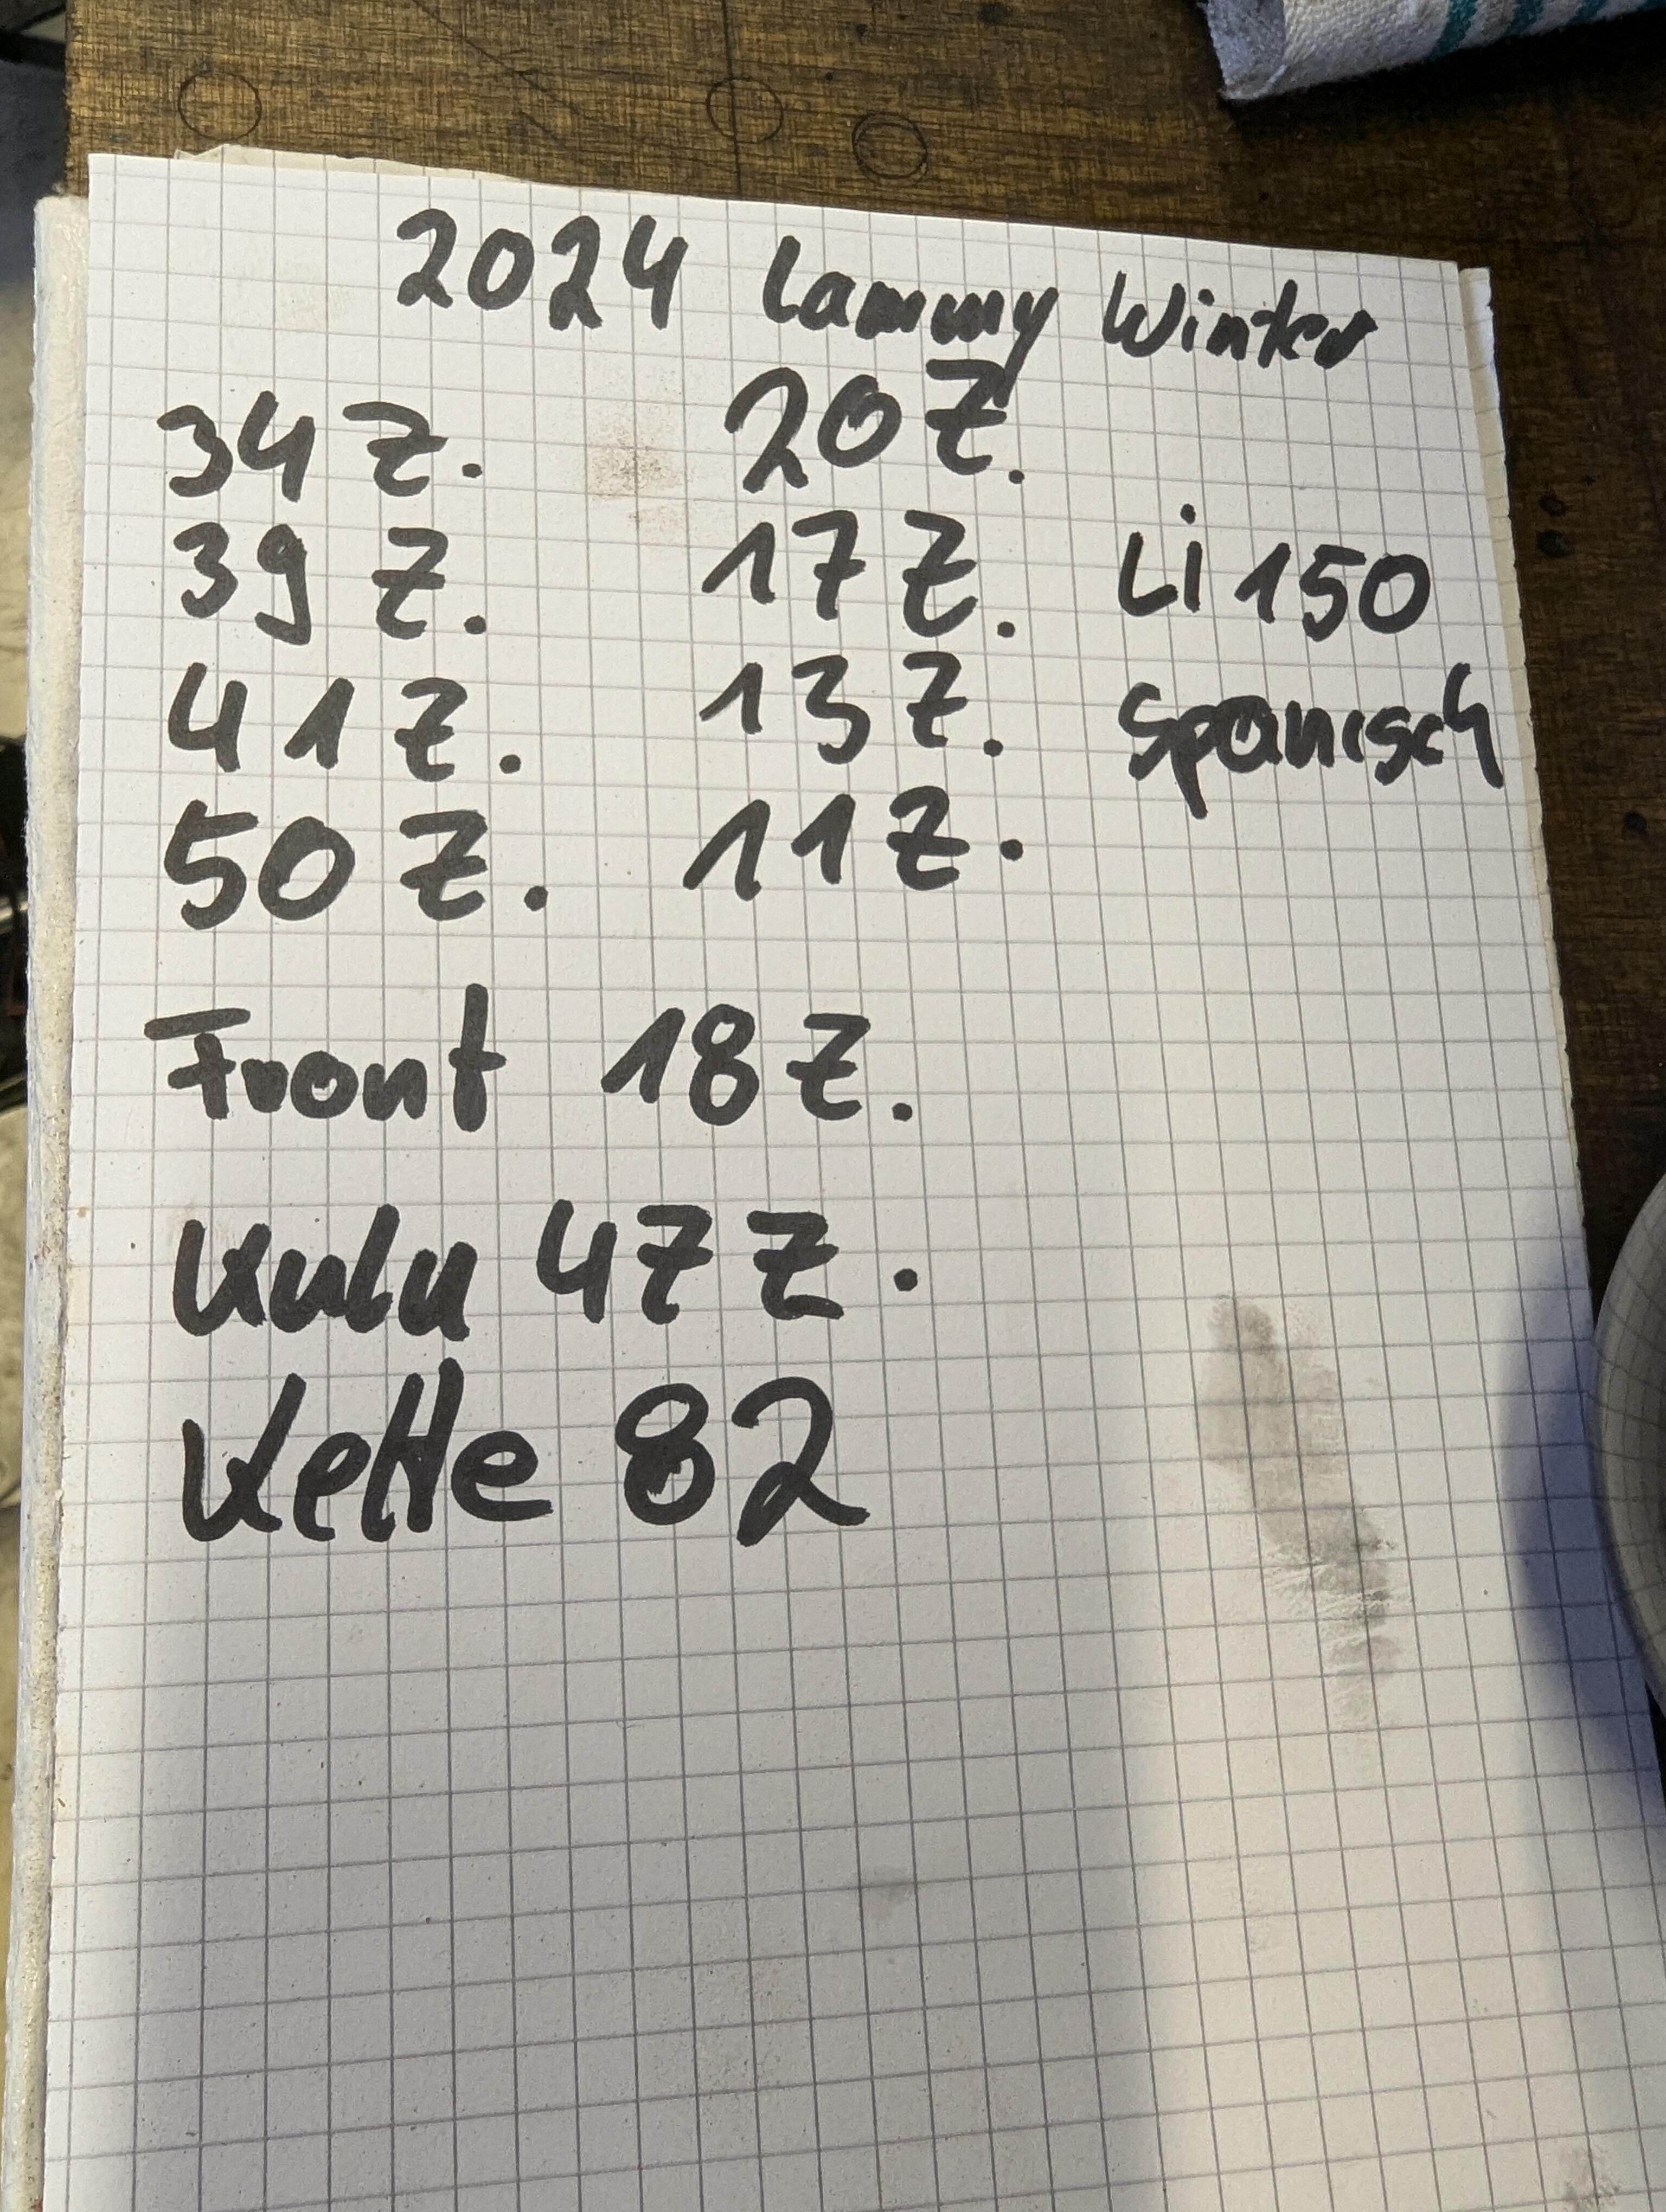 2024 Lammy Winter
34 Z. 20 Z.
39 Z. 17 Z. Li 150
41 Z. 13 Z. Spanisch
50 Z. 11 Z.
Front 18 Z.
Kulu 47 Z.
Kette 82